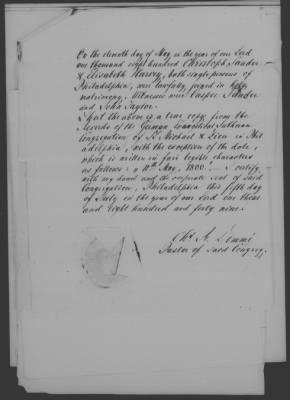 On the eleventh day of May in the year of our Lord
one thousand eight hundred Christoph Sander
& Elisabeth Harvey, both single persons of
Philadelphia, were lawfully joined in holy
matrimony. Witnesses were Casper Sander
and John Taylor.
That the above is a true copy from the
Records of the German Lutheran
Congregation of St Michael & Zion in Phil
adelphia, with the exception of the date,
which is written in fair legible characters
as follows: 11th May, 1800. I certify
with my hand and the corporate seal of said
Congregation, Philadelphia this fifth day
of July in the year of our Lord one thous
and Eight hundred and forty nine.
Pastor of said Congreg.